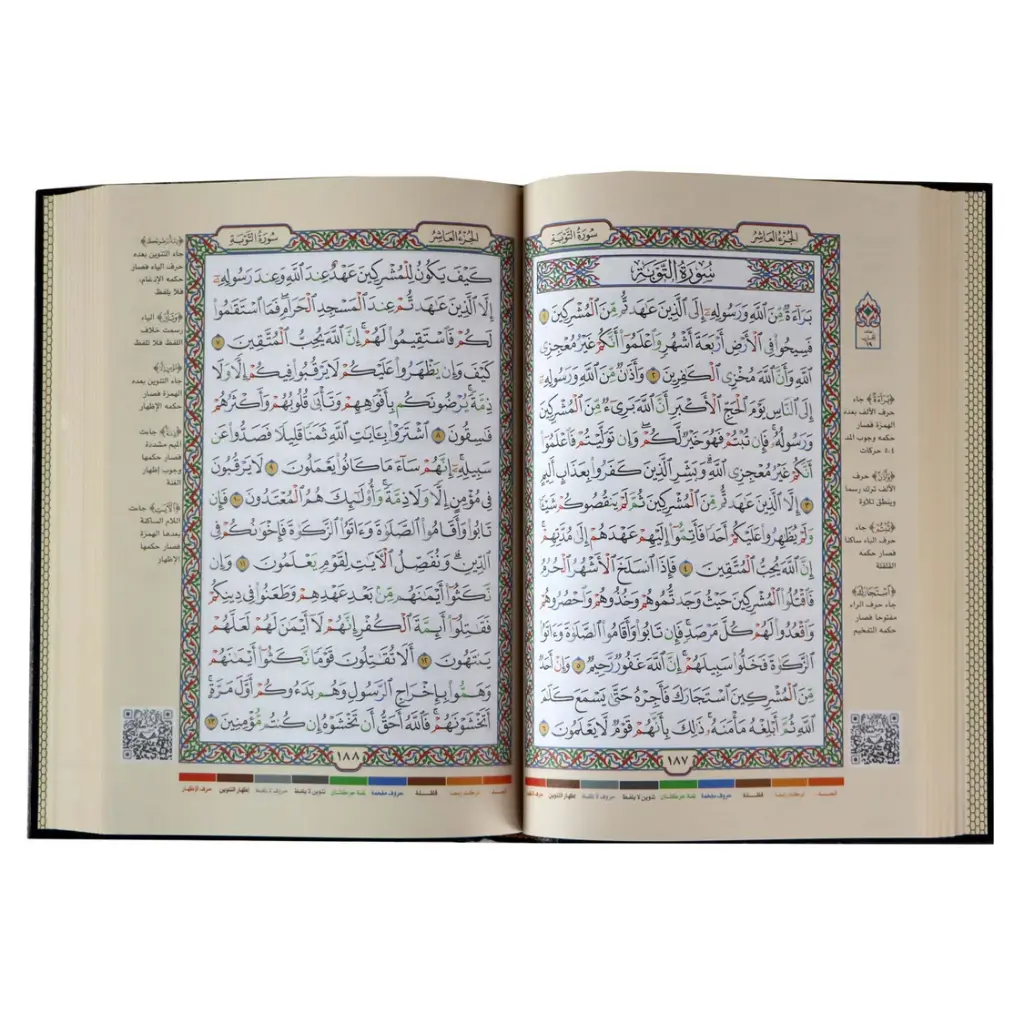 الجُزْءُ العَاشِرُ
سُورَةُ التَّوْبَةِ
سُورَةُ التَّوْبَةِ
بَرَآءَةٌ مِّنَ ٱللَّهِ وَرَسُولِهِۦٓ إِلَى ٱلَّذِينَ عَٰهَدتُّم مِّنَ ٱلْمُشْرِكِينَ ١
فَسِيحُوا۟ فِى ٱلْأَرْضِ أَرْبَعَةَ أَشْهُرٍ وَٱعْلَمُوٓا۟ أَنَّكُمْ غَيْرُ مُعْجِزِى
ٱللَّهِ وَأَنَّ ٱللَّهَ مُخْزِى ٱلْكَٰفِرِينَ ٢ وَأَذَٰنٌ مِّنَ ٱللَّهِ وَرَسُولِهِۦٓ
إِلَى ٱلنَّاسِ يَوْمَ ٱلْحَجِّ ٱلْأَكْبَرِ أَنَّ ٱللَّهَ بَرِىٓءٌ مِّنَ ٱلْمُشْرِكِينَ
وَرَسُولُهُۥ فَإِن تُبْتُمْ فَهُوَ خَيْرٌ لَّكُمْ وَإِن تَوَلَّيْتُمْ فَٱعْلَمُوٓا۟
أَنَّكُمْ غَيْرُ مُعْجِزِى ٱللَّهِ وَبَشِّرِ ٱلَّذِينَ كَفَرُوا۟ بِعَذَابٍ أَلِيمٍ
٣ إِلَّا ٱلَّذِينَ عَٰهَدتُّم مِّنَ ٱلْمُشْرِكِينَ ثُمَّ لَمْ يَنقُصُوكُمْ شَيْـًٔا
وَلَمْ يُظَٰهِرُوا۟ عَلَيْكُمْ أَحَدًا فَأَتِمُّوٓا۟ إِلَيْهِمْ عَهْدَهُمْ إِلَىٰ مُدَّتِهِمْ
إِنَّ ٱللَّهَ يُحِبُّ ٱلْمُتَّقِينَ ٤ فَإِذَا ٱنسَلَخَ ٱلْأَشْهُرُ ٱلْحُرُمُ
فَٱقْتُلُوا۟ ٱلْمُشْرِكِينَ حَيْثُ وَجَدتُّمُوهُمْ وَخُذُوهُمْ وَٱحْصُرُوهُمْ
وَٱقْعُدُوا۟ لَهُمْ كُلَّ مَرْصَدٍ فَإِن تَابُوا۟ وَأَقَامُوا۟ ٱلصَّلَوٰةَ وَءَاتَوُا۟
ٱلزَّكَوٰةَ فَخَلُّوا۟ سَبِيلَهُمْ إِنَّ ٱللَّهَ غَفُورٌ رَّحِيمٌ ٥ وَإِنْ أَحَدٌ
مِّنَ ٱلْمُشْرِكِينَ ٱسْتَجَارَكَ فَأَجِرْهُ حَتَّىٰ يَسْمَعَ كَلَٰمَ
ٱللَّهِ ثُمَّ أَبْلِغْهُ مَأْمَنَهُۥ ذَٰلِكَ بِأَنَّهُمْ قَوْمٌ لَّا يَعْلَمُونَ ٦
١٨٧
١٩
﴿بَرَآءَةٌ﴾ جاء
حرف الألف بعده
الهمزة فصار
حكمه وجوب المد
٤،٥ حركات
﴿وَأَذَٰنٌ﴾ حرف
الألف ترك رسما
وينطق تلاوة
﴿تُبْتُمْ﴾ جاء
حرف الباء ساكنا
فصار حكمه
القلقلة
﴿ٱسْتَجَارَكَ﴾
جاء حرف الراء
مفتوحا فصار
حكمه التفخيم
المــد تركت رسما قلقــلة حروف مفخمة غنة حركتان تنوين لا يلفظ حروف لا تلفظ إظهار التنوين
الجُزْءُ العَاشِرُ
سُورَةُ التَّوْبَةِ
كَيْفَ يَكُونُ لِلْمُشْرِكِينَ عَهْدٌ عِندَ ٱللَّهِ وَعِندَ رَسُولِهِۦٓ
إِلَّا ٱلَّذِينَ عَٰهَدتُّمْ عِندَ ٱلْمَسْجِدِ ٱلْحَرَامِ فَمَا ٱسْتَقَٰمُوا۟
لَكُمْ فَٱسْتَقِيمُوا۟ لَهُمْ إِنَّ ٱللَّهَ يُحِبُّ ٱلْمُتَّقِينَ ٧
كَيْفَ وَإِن يَظْهَرُوا۟ عَلَيْكُمْ لَا يَرْقُبُوا۟ فِيكُمْ إِلًّا وَلَا
ذِمَّةً يُرْضُونَكُم بِأَفْوَٰهِهِمْ وَتَأْبَىٰ قُلُوبُهُمْ وَأَكْثَرُهُمْ
فَٰسِقُونَ ٨ ٱشْتَرَوْا۟ بِـَٔايَٰتِ ٱللَّهِ ثَمَنًا قَلِيلًا فَصَدُّوا۟ عَن
سَبِيلِهِۦٓ إِنَّهُمْ سَآءَ مَا كَانُوا۟ يَعْمَلُونَ ٩ لَا يَرْقُبُونَ
فِى مُؤْمِنٍ إِلًّا وَلَا ذِمَّةً وَأُو۟لَٰٓئِكَ هُمُ ٱلْمُعْتَدُونَ ١٠ فَإِن
تَابُوا۟ وَأَقَامُوا۟ ٱلصَّلَوٰةَ وَءَاتَوُا۟ ٱلزَّكَوٰةَ فَإِخْوَٰنُكُمْ فِى
ٱلدِّينِ وَنُفَصِّلُ ٱلْـَٔايَٰتِ لِقَوْمٍ يَعْلَمُونَ ١١ وَإِن
نَّكَثُوٓا۟ أَيْمَٰنَهُم مِّنۢ بَعْدِ عَهْدِهِمْ وَطَعَنُوا۟ فِى دِينِكُمْ
فَقَٰتِلُوٓا۟ أَئِمَّةَ ٱلْكُفْرِ إِنَّهُمْ لَآ أَيْمَٰنَ لَهُمْ لَعَلَّهُمْ
يَنتَهُونَ ١٢ أَلَا تُقَٰتِلُونَ قَوْمًا نَّكَثُوٓا۟ أَيْمَٰنَهُمْ
وَهَمُّوا۟ بِإِخْرَاجِ ٱلرَّسُولِ وَهُم بَدَءُوكُمْ أَوَّلَ مَرَّةٍ
أَتَخْشَوْنَهُمْ فَٱللَّهُ أَحَقُّ أَن تَخْشَوْهُ إِن كُنتُم مُّؤْمِنِينَ ١٣
١٨٨
جاء التنوين بعده
حرف الياء فصار
حكمه الإدغام،
فلا يلفظ
﴿وَتَأْبَىٰ﴾ الياء
رسمت خلاف
اللفظ فلا تلفظ
جاء التنوين بعده
الهمزة فصار
حكمه الإظهار
﴿ذِمَّةً﴾ جاءت
الميم مشددة
فصار حكمها
وجوب إظهار
الغنة
﴿ٱلْـَٔايَٰتِ﴾ جاءت
اللام الساكنة
بعدها الهمزة
فصار حكمها
الإظهار
المــد تركت رسما قلقــلة حروف مفخمة غنة حركتان تنوين لا يلفظ حروف لا تلفظ إظهار التنوين حرف الإظهار